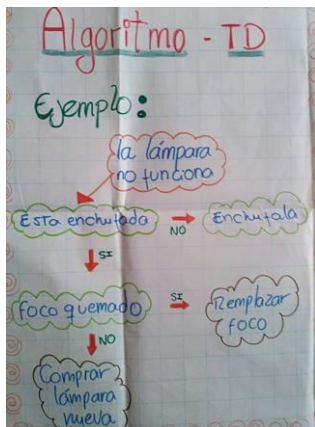 Algoritmo - TD
Ejemplo:
la lámpara
no funciona
Esta enchufada
NO
Enchufala
SI
foco quemado
SI
Remplazar
foco
NO
Comprar
lámpara
nueva